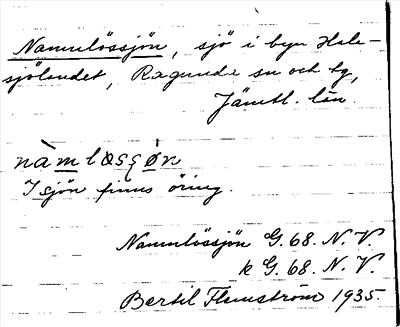 Namnlössjön, sjö i byn Hale-
sjölandet, Ragunda sn och tg,
Jämtl. län.
nàmløsʂø̀n
I sjön finns öring.
Namnlössjön G. 68. N. V.
k G. 68. N. V.
Bertil Flemström 1935.